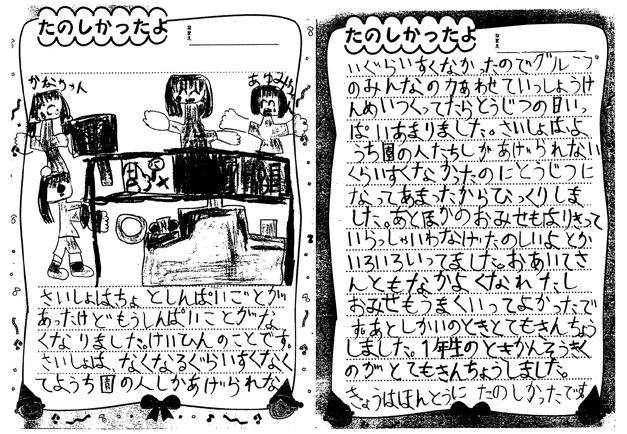 たのしかったよ
なまえ
かなりん
あゆみ
さいしょはちょとしんぱいごとが
あったけどもうしんぱいことがな
くなりました。けいひんのことです。
さいしょは、なくなるぐらいすくなく
てようち園の人しかあげられな
たのしかったよ
なまえ
いぐらいすくなかったのでグループ
のみんなの力あわせていっしょうけ
んめいつくってたらとうじつの日いっ
ぱいあまりました。さいしょはよ
うち園の人たちしかあげられない
くらいすくなかったのにとうじつに
なってあまったからびっくりしま
した。あとほかのおみせもはりきって
いらっしゃいわなげたのしいよとか
いろいろいってました。おあいてさ
んともなかよくなれたし
おみせもうまくいってよかったで
すあとしかいのときとてもきんちょう
しました。1年生のときかんそうきく
のがとてもきんちょうしました。
きょうはほんとうにたのしかったです